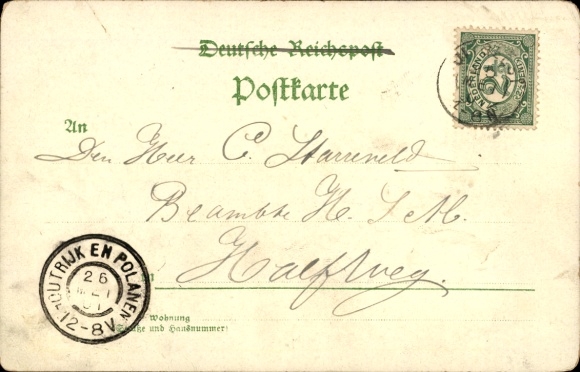 Deutsche Reichspost
Postkarte
NEDERLAND
2½
An
Den Heer C. Starreveld
Beambte H. S. M.
Halfweg.
HOUTRIJK EN POLANEN
26
12-8V
Wohnung
(Straße und Hausnummer)